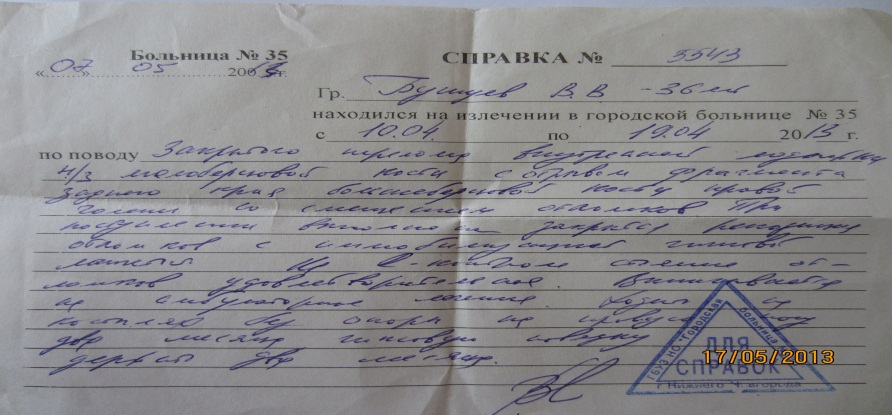 Больница № 35
СПРАВКА № 5543
«07» 05 2013 г.
Гр. Бушуев В.В - 36 лет
находился на излечении в городской больнице № 35
с 10.04. по 19.04 2013 г.
по поводу Закрытого перелома внутренней лодыжки
н/з малоберцовой кости с отрывом фрагмента
заднего края большеберцовой кости правой
голени со смещением отломков При
поступлении выполнена закрытая репозиция
отломков с иммобилизацией гипсовой
На R-контроле стояние от-
ломков удовлетворительное. Выписывается
на амбулаторное лечение. Ходить на
костылях без опоры на правую ногу
два месяца гипсовую повязку
держать два месяца.
ГБУЗ НО "Городская больница №
ДЛЯ
СПРАВОК
г. Нижнего Новгорода
17/05/2013